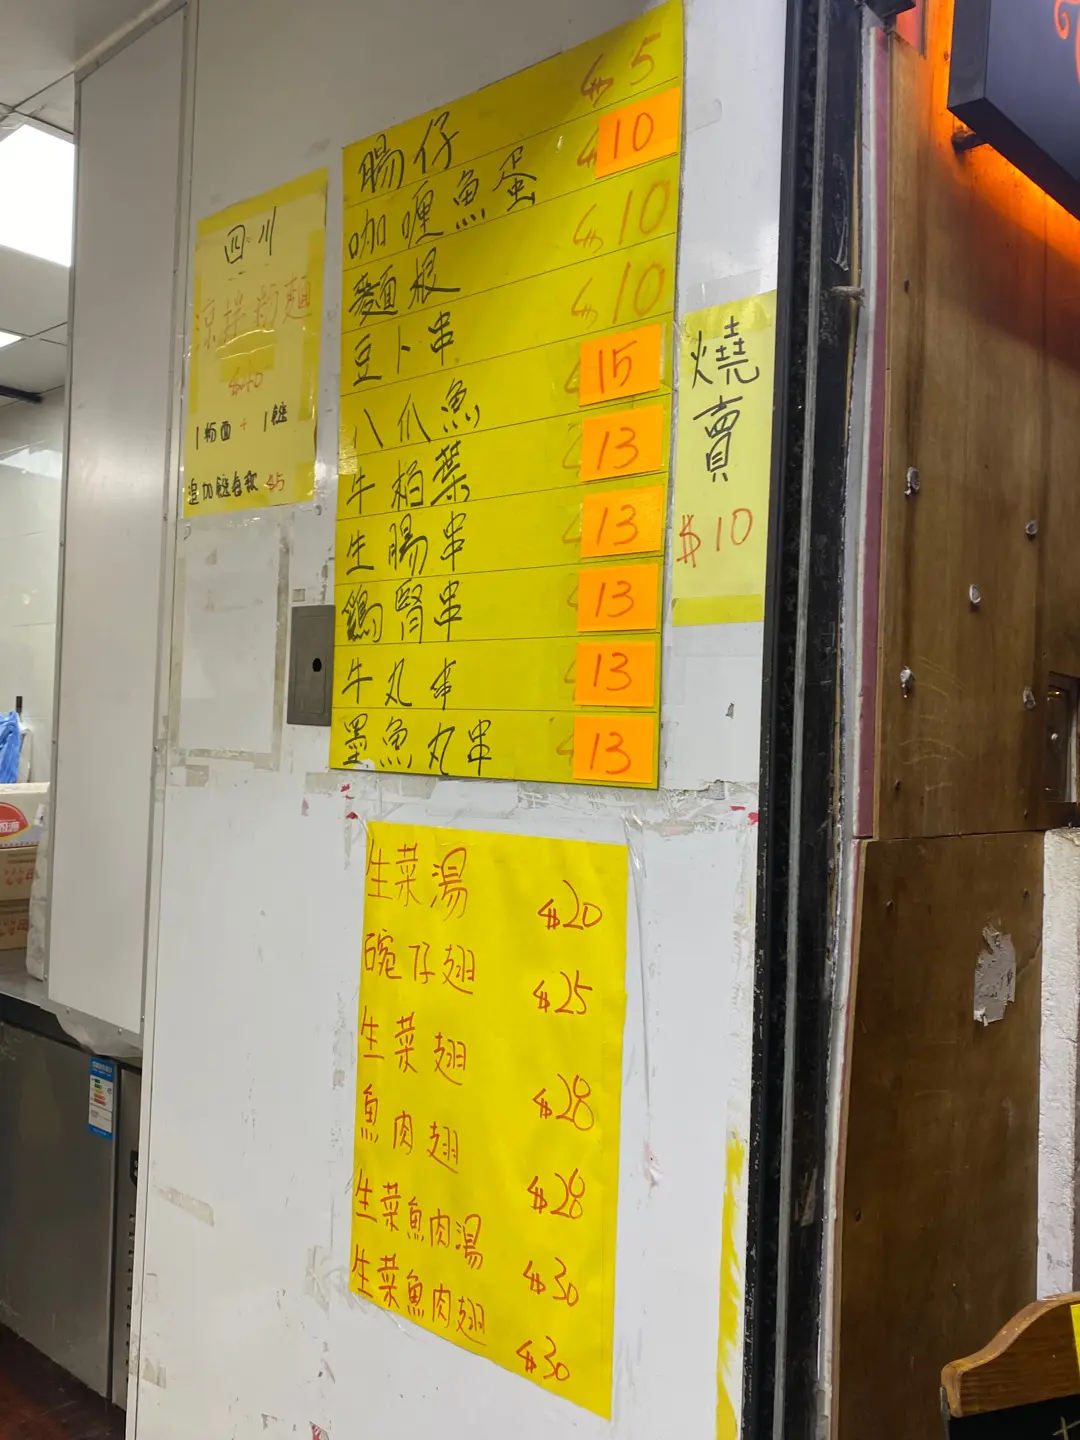 四川
涼拌粉麵
$40
1粉面 + 1餸
追加餸每款 $5
腸仔 $5
咖喱魚蛋 $10
麵根 $10
豆卜串 $10
八爪魚 15
牛栢葉 13
生腸串 13
鷄腎串 13
牛丸串 13
墨魚丸串 13
燒賣
$10
生菜湯 $20
碗仔翅 $25
生菜翅 $28
魚肉翅 $28
生菜魚肉湯 $30
生菜魚肉翅 $30